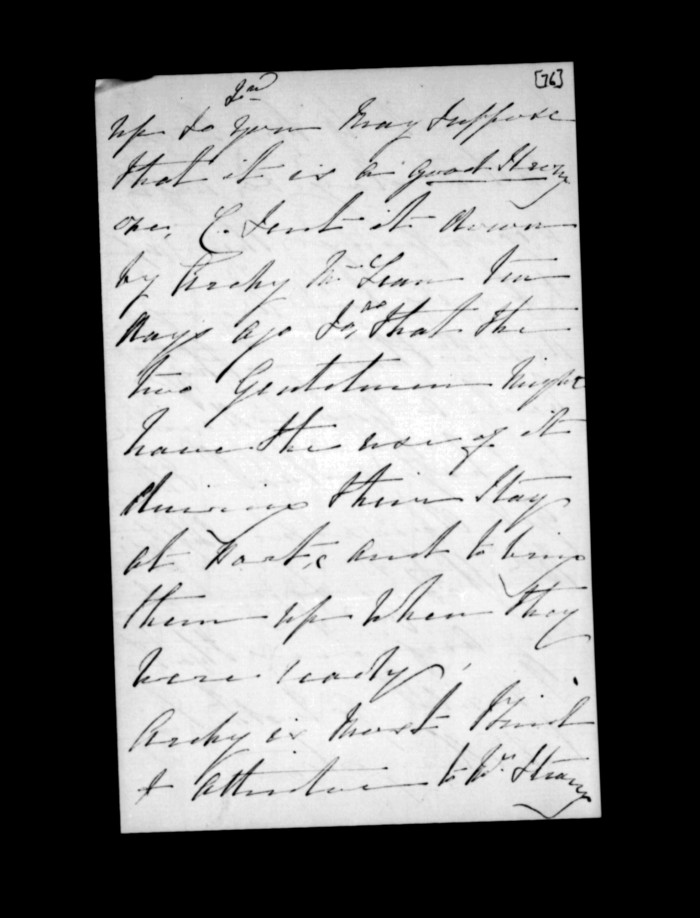 [76]
2nd
up so you may suppose
that it is a good strong
one, C. sent it down
by Archy McLean ten
days ago so, that the
two Gentlemen might
have the use of it
during their stay
at Port, and to bring
them up when they
were ready,
Archy is most kind
& attentive to